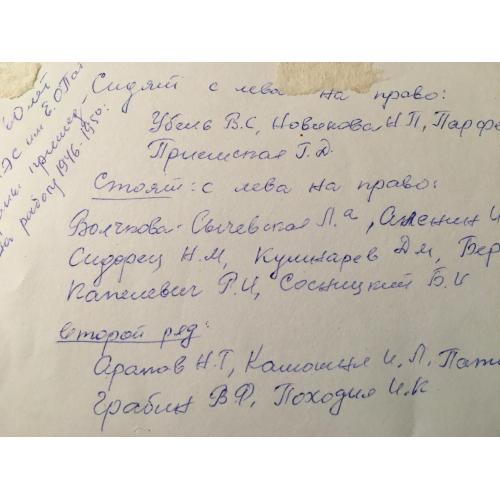 60 лет
ЭС им Е.О Пат
за работу 1946-1950:
Сидят с лева на право:
Убель В.С, Новикова Н П, Парфе
Приемская Г.Д.
Стоят: с лева на право:
Волчкова-Сычевская Л.а, Аженин И
Сидорец Н.М, Кулинарев Д м, Бер
Капелевич Р.И, Сосницкий Б.И
второй ряд:
Арапов Н.Т, И. Л. Пат
Грабин В.Ф, Походня И.К.